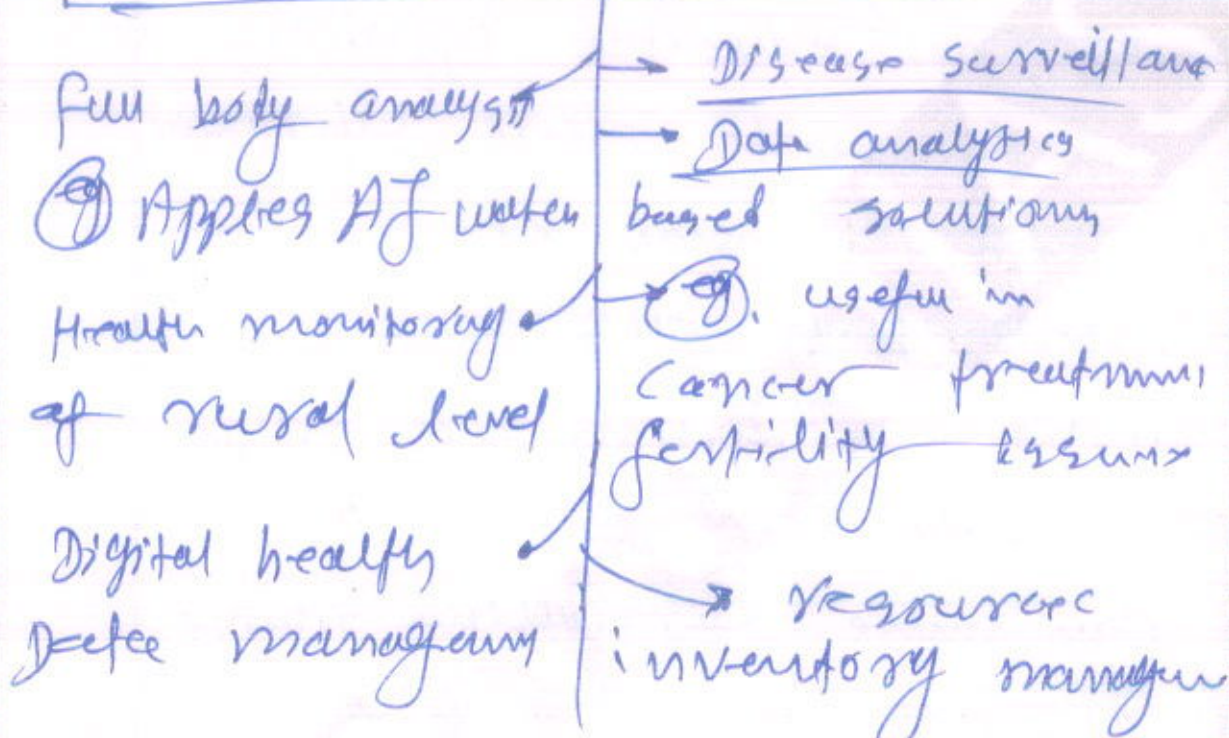 Full body analysis
eg Apples AI watch
Health monitoring
at rural level
Digital health
Data managem
Disease Surveillanc
Data analytics
based solutions
eg. useful in
Cancer treatmen
fertility issues
resource
inventory managem